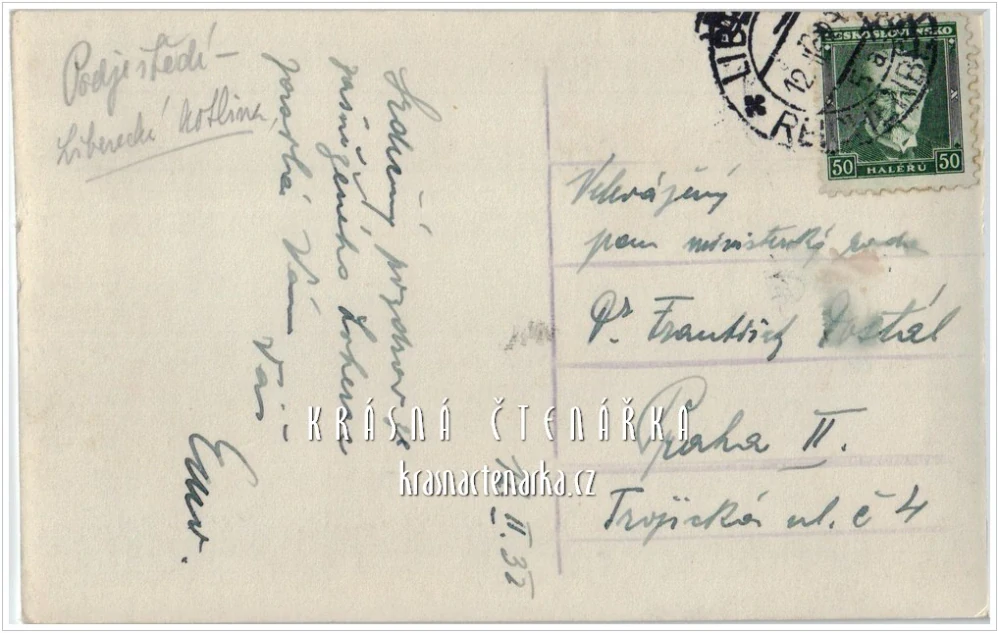 Podještědí -
Liberecká kotlina,
Srdečný pozdrav ze
zasněženého
posílá Vám
Váš
12. II. 32
ČESKOSLOVENSKO
50 HALÉŘŮ 50
LIB
12
REI
Velevážený
pan ministerský rada
Dr František Dostál
Praha II.
Trojická ul. č 4
KRÁSNÁ ČTENÁŘKA
krasnactenarka.cz